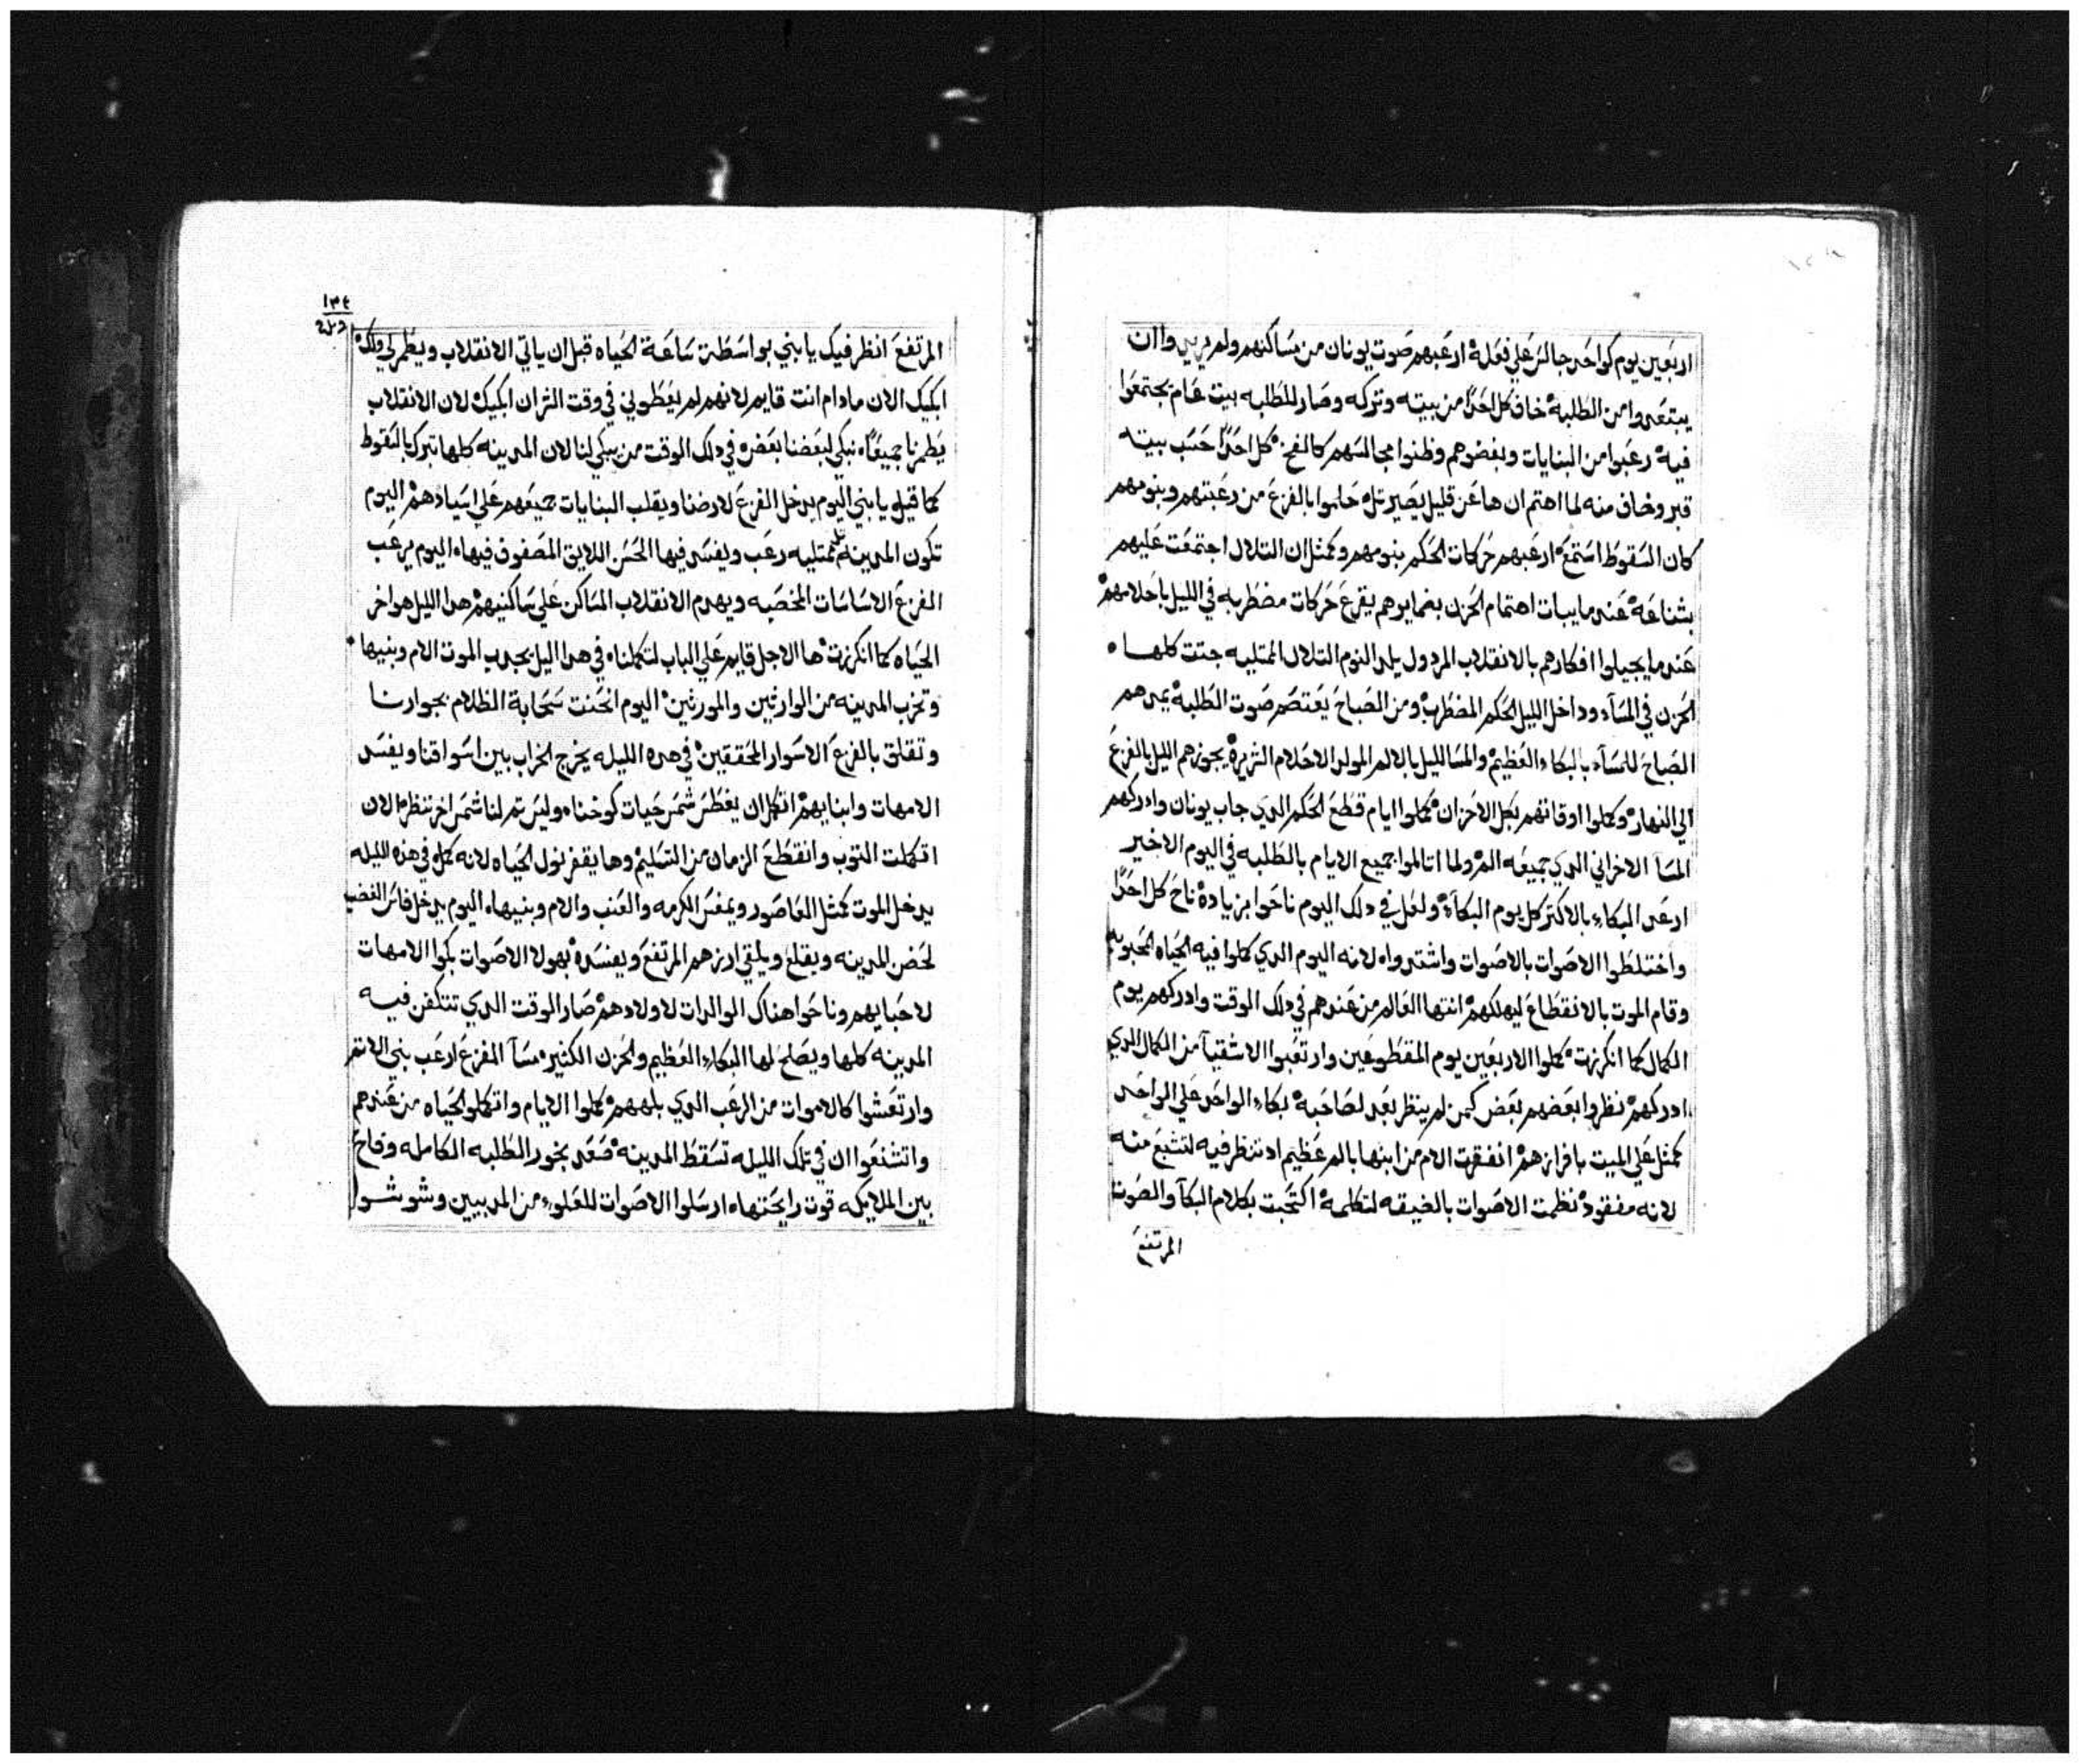 اربعين يوم كواحد جالس علي فعله ارعبهم صوت يونان من مساكنهم ولم يريدوا ان
يبتعدوا من الطلبه خاف كل احدًا من بيته وتركه وصار للطلبه بيت عام يجتمعوا
فيه رعبوا من البنايات وبغضوهم وظنوا مجالسهم كالفخ كل احدًا حسب بيته
قبر وخاف منه لما اهتم ان ها عن قليل يصير تل حلموا بالفزع من رعبتهم وبنومهم
كان السقوط استمع ارعبهم حركات الحكم بنومهم وكمثل ان التلال اجتمعت عليهم
بشناعه عند ما يبات اهتمام الحزن بضمايرهم يقرع حركات مضطربه في الليل باحلامهم
عند ما يجيلوا افكارهم بالانقلاب المردول يلد النوم التلال الممتليه جتت كلها
الحزن في المساء وداخل الليل الحكم المضطرب ومن الصباح يعتصم صوت الطلبه يمدهم
الصباح للمساء بالبكاء العظيم والمسا لليل بالالم المولد الاحلام الشريره يجوزهم الليل بالفزع
الي النهار وكملوا اوقاتهم بكل الاحزان كملوا ايام قطع الحكم الدي جاب يونان وادركهم
المسا الاخراني الدي جميعه المر ولما اتالموا جميع الايام بالطلبه في اليوم الاخير
ارعد البكاء بالاكتر كل يوم البكاء ولعل في دلك اليوم ناحوا بزياده ناح كل احدًا
واختلطوا الاصوات بالاصوات واشتدوا لانه اليوم الدي كملوا فيه الحياه المحبوبه
وقام الموت بالانقطاع ليهلكهم انتها العالم من عندهم في دلك الوقت وادركهم يوم
الكمال كما انكرزت كملوا الاربعين يوم المقطوعين وارتعبوا الاشقيا من الكمال الدي
ادركهم نظروا بعضهم بعض كمن لم ينظر بعد لصاحبه بكاء الواحد علي الواحد
كمثل علي الميت بافرازهم انفقدت الام من ابنها بالم عظيم اد تنظر فيه لتشبع منه
لانه مفقود نظمت الاصوات بالضيقه لتكلمه اكتحبت بكلام البكا والصوت
المرتفع
١٣٤
المرتفع انظر فيك يا بني بواسطة ساعة الحياه قبل ان ياتي الانقلاب ويطمر لي ولك
ابكيك الان مادام انت قايم لانهم لم يعطوني في وقت اخر ان ابكيك لان الانقلاب
يطمرنا جميعًا نبكي لبعضنا بعض في دلك الوقت من يبكي لنا لان المدينه كلها تبرك بالسقوط
كما قيل يا بني اليوم يدخل الفزع لارضنا ويقلب البنايات جميعهم علي اسيادهم اليوم
تكون المدينه ممتليه رعب ويفسد فيها الحسن اللايق المصفوف فيها اليوم يرعب
الفزع الاساسات المخصبه ويهدم الانقلاب المساكن علي ساكنيهم هدا الليل هو اخر
الحياه كما انكرزت ها الاجل قايم علي الباب لتكملنا في هدا اليل يجدب الموت الام وبنيها
وتخرب المدينه من الوارثين والمورثين اليوم انحنت سحابة الظلام بجوارنا
وتقلق بالفزع الاسوار المحققين في هده الليله يخرج الخراب بين اسواقنا ويفسد
الامهات وابنايهم اتكل ان يغطس شمس حيات كوخنا وليس تم لنا شمس اخر ننظر الان
اتكملت التوب وانقطع الزمان من التسليم وها يقفز نول الحياه لانه كمل في هذه الليله
يدخل الموت كمثل العاصور ويمغس الكرمه والعنب والام وبنيها اليوم يدخل فاس الغضب
لحضن المدينه ويقلع ويلقي ارزهم المرتفع ويفسده بهولا الاصوات بكوا الامهات
لاحبايهم وناحوا هناك الوالدات لاولادهم صار الوقت الدي تتكفن فيه
المدينه كلها ويصلح لها البكاء العظيم والحزن الكثير مسا المفزع ارعب بني الاتم
وارتعشوا كالاموات من الرعب الدي بلههم كملوا الايام واتكملوا الحياه من عندهم
واتشنعوا ان في تلك الليله تسقط المدينه صعد بخور الطلبه الكامله وفاح
بين الملايكه قوت رايحتها ارسلوا الاصوات للعلوء من المدببين وشوشوا